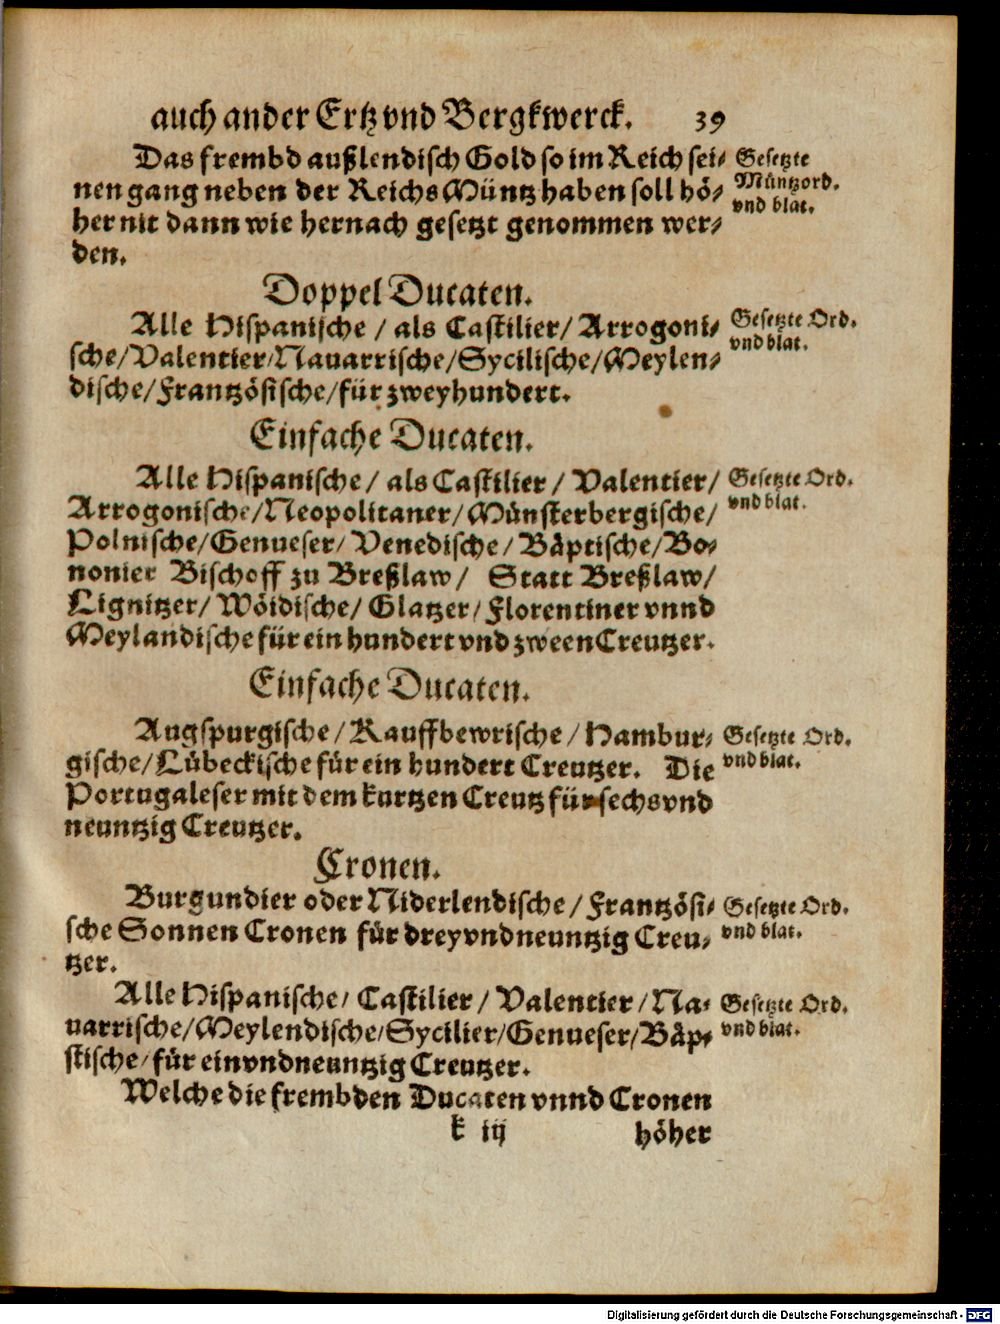 auch ander Ertz vnd Bergkwerck. 39
Das frembd außlendisch Gold so im Reich sei⸗
nen gang neben der Reichs Müntz haben soll hö⸗
her nit dann wie hernach gesetzt genommen wer⸗
den.
Gesetzte
Müntzord.
vnd blat.
Doppel Ducaten.
Alle Hispanische / als Castilier / Arrogoni⸗
sche / Valentier / Nauarrische / Sycilische / Meylen⸗
dische / Frantzösische / für zweyhundert.
Gesetzte Ord.
vnd blat.
Einfache Ducaten.
Alle Hispanische / als Castilier / Valentier /
Arrogonische / Neopolitaner / Münsterbergische /
Polnische / Genueser / Venedische / Bäptische / Bo⸗
nonier Bischoff zu Breßlaw / Statt Breßlaw /
Lignitzer / Wöidische / Glatzer / Florentiner vnnd
Meylandische für ein hundert vnd zween Creutzer.
Gesetzte Ord.
vnd blat.
Einfache Ducaten.
Augspurgische / Kauffbewrische / Hambur⸗
gische / Lübeckische für ein hundert Creutzer. Die
Portugaleser mit dem kurtzen Creutz für sechs vnd
neuntzig Creutzer.
Gesetzte Ord.
vnd blat.
Cronen.
Burgundier oder Niderlendische / Frantzösi⸗
sche Sonnen Cronen für drey vnd neuntzig Creu⸗
tzer.
Gesetzte Ord.
vnd blat.
Alle Hispanische / Castilier / Valentier / Na⸗
uarrische / Meylendische / Sycilier / Genueser / Bäp⸗
stische / für ein vnd neuntzig Creutzer.
Gesetzte Ord.
vnd blat.
Welche die frembden Ducaten vnnd Cronen
k iij höher
Digitalisierung gefördert durch die Deutsche Forschungsgemeinschaft - DFG